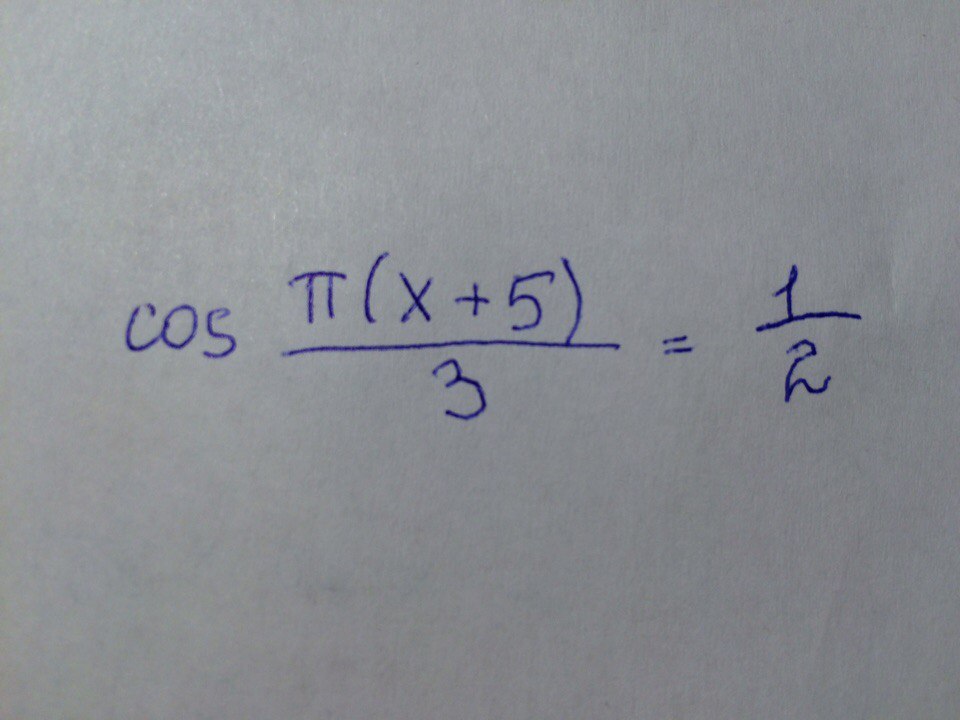 cos π(x+5)/3 = 1/2